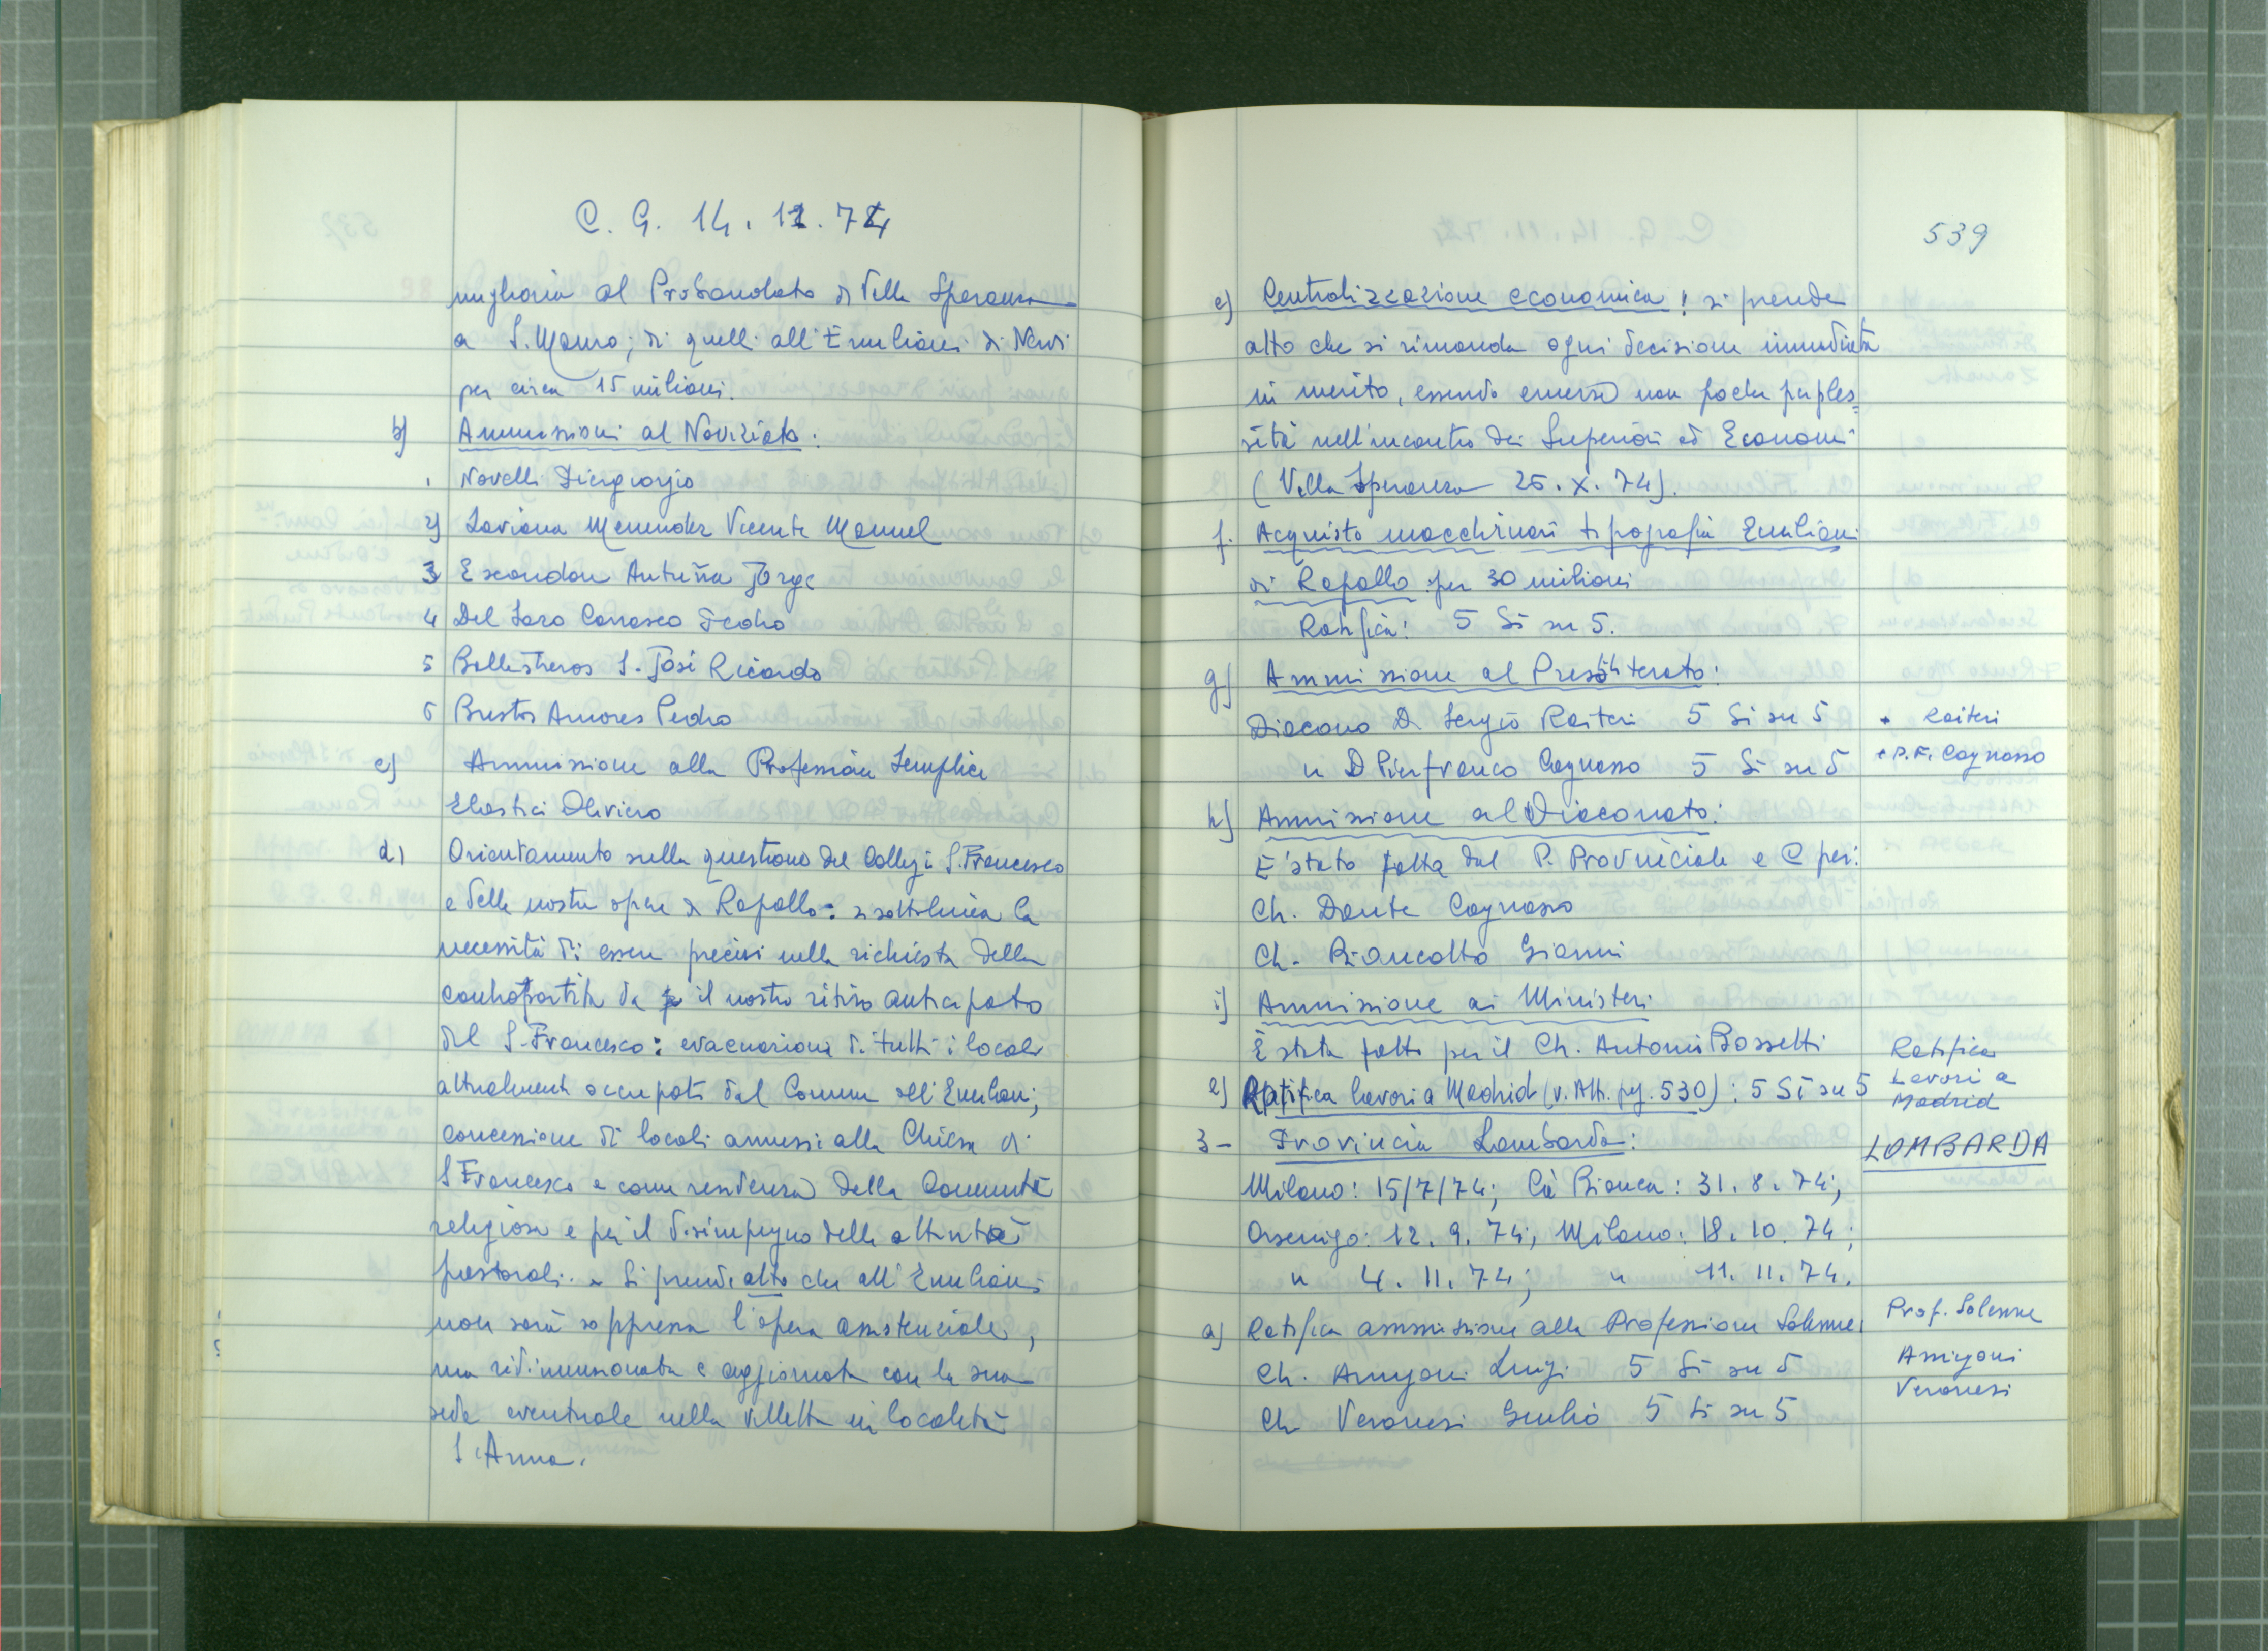 C. G. 14. 11. 74
miglioria al Probandato di Villa Speranza
a S. Mauro; di quelli all'Emiliani di Nervi
per circa 15 milioni.
b) Ammissioni al Noviziato:
1 Novelli Piergiorgio
2) Laviana Menendez Vicente Manuel
3 Escandon Antuña Jorge
4 Del Saro Carrasco Pedro
5 Ballestreros S. José Ricardo
6 Bustos Amores Pedro
c) Ammissione alla Professione Semplice
Elastici Oliviero
d) Orientamento sulla questione del Collegio S. Francesco
e delle nostre opere di Rapallo: si sottolinea la
necessità di essere precisi nella richiesta della
contropartita da il nostro ritiro anticipato
dal S. Francesco: evacuazione di tutti i locali
attualmente occupati dal Comune all'Emiliani;
concessione di locali annessi alla Chiesa di
S Francesco e come residenza della Comunità
religiosa e per il disimpegno delle attività
pastorali. Si prende atto che all'Emiliani
non sarà soppressa l'opera assistenziale,
ma ridimensionata e aggiornata con la sua
sede eventuale nella villetta in località
S. Anna.
539
e) Centralizzazione economica: si prende
atto che si rimanda ogni decisione immediata
in merito, essendo emerse non poche perples=
sità nell'incontro dei Superiori ed Economi
(Villa Speranza 25. X. 74).
f. Acquisto macchinari tipografia Emiliani
di Rapallo per 30 milioni
Ratifica: 5 Sì su 5.
g) Ammissione al Presbiterato:
Diacono D. Sergio Raiteri 5 Sì su 5
" D Pierfranco Cagnasso 5 Sì su 5
+ Raiteri
+ P.F. Cagnasso
h) Ammissione al Diaconato:
È stato fatta dal P. Provinciale e C per:
Ch. Dante Cagnasso
Ch. Biancotto Gianni
i) Ammissione ai Ministeri
È stata fatta per il Ch. Antonio Bossetti
l) Ratifica lavori a Madrid (v. Atti pag. 530): 5 Sì su 5
Ratifica
Lavori a
Madrid
3- Provincia Lombarda:
LOMBARDA
Milano: 15/7/74; Cà Bianca: 31. 8. 74;
Orsenigo: 12. 9. 74; Milano: 18. 10. 74;
" 4. 11. 74; " 11. 11. 74.
a) Ratifica ammissione alla Professione Solenne:
Ch. Arrigoni Luigi 5 Sì su 5
Ch Veronesi Giulio 5 Sì su 5
Prof. Solenne
Arrigoni
Veronesi